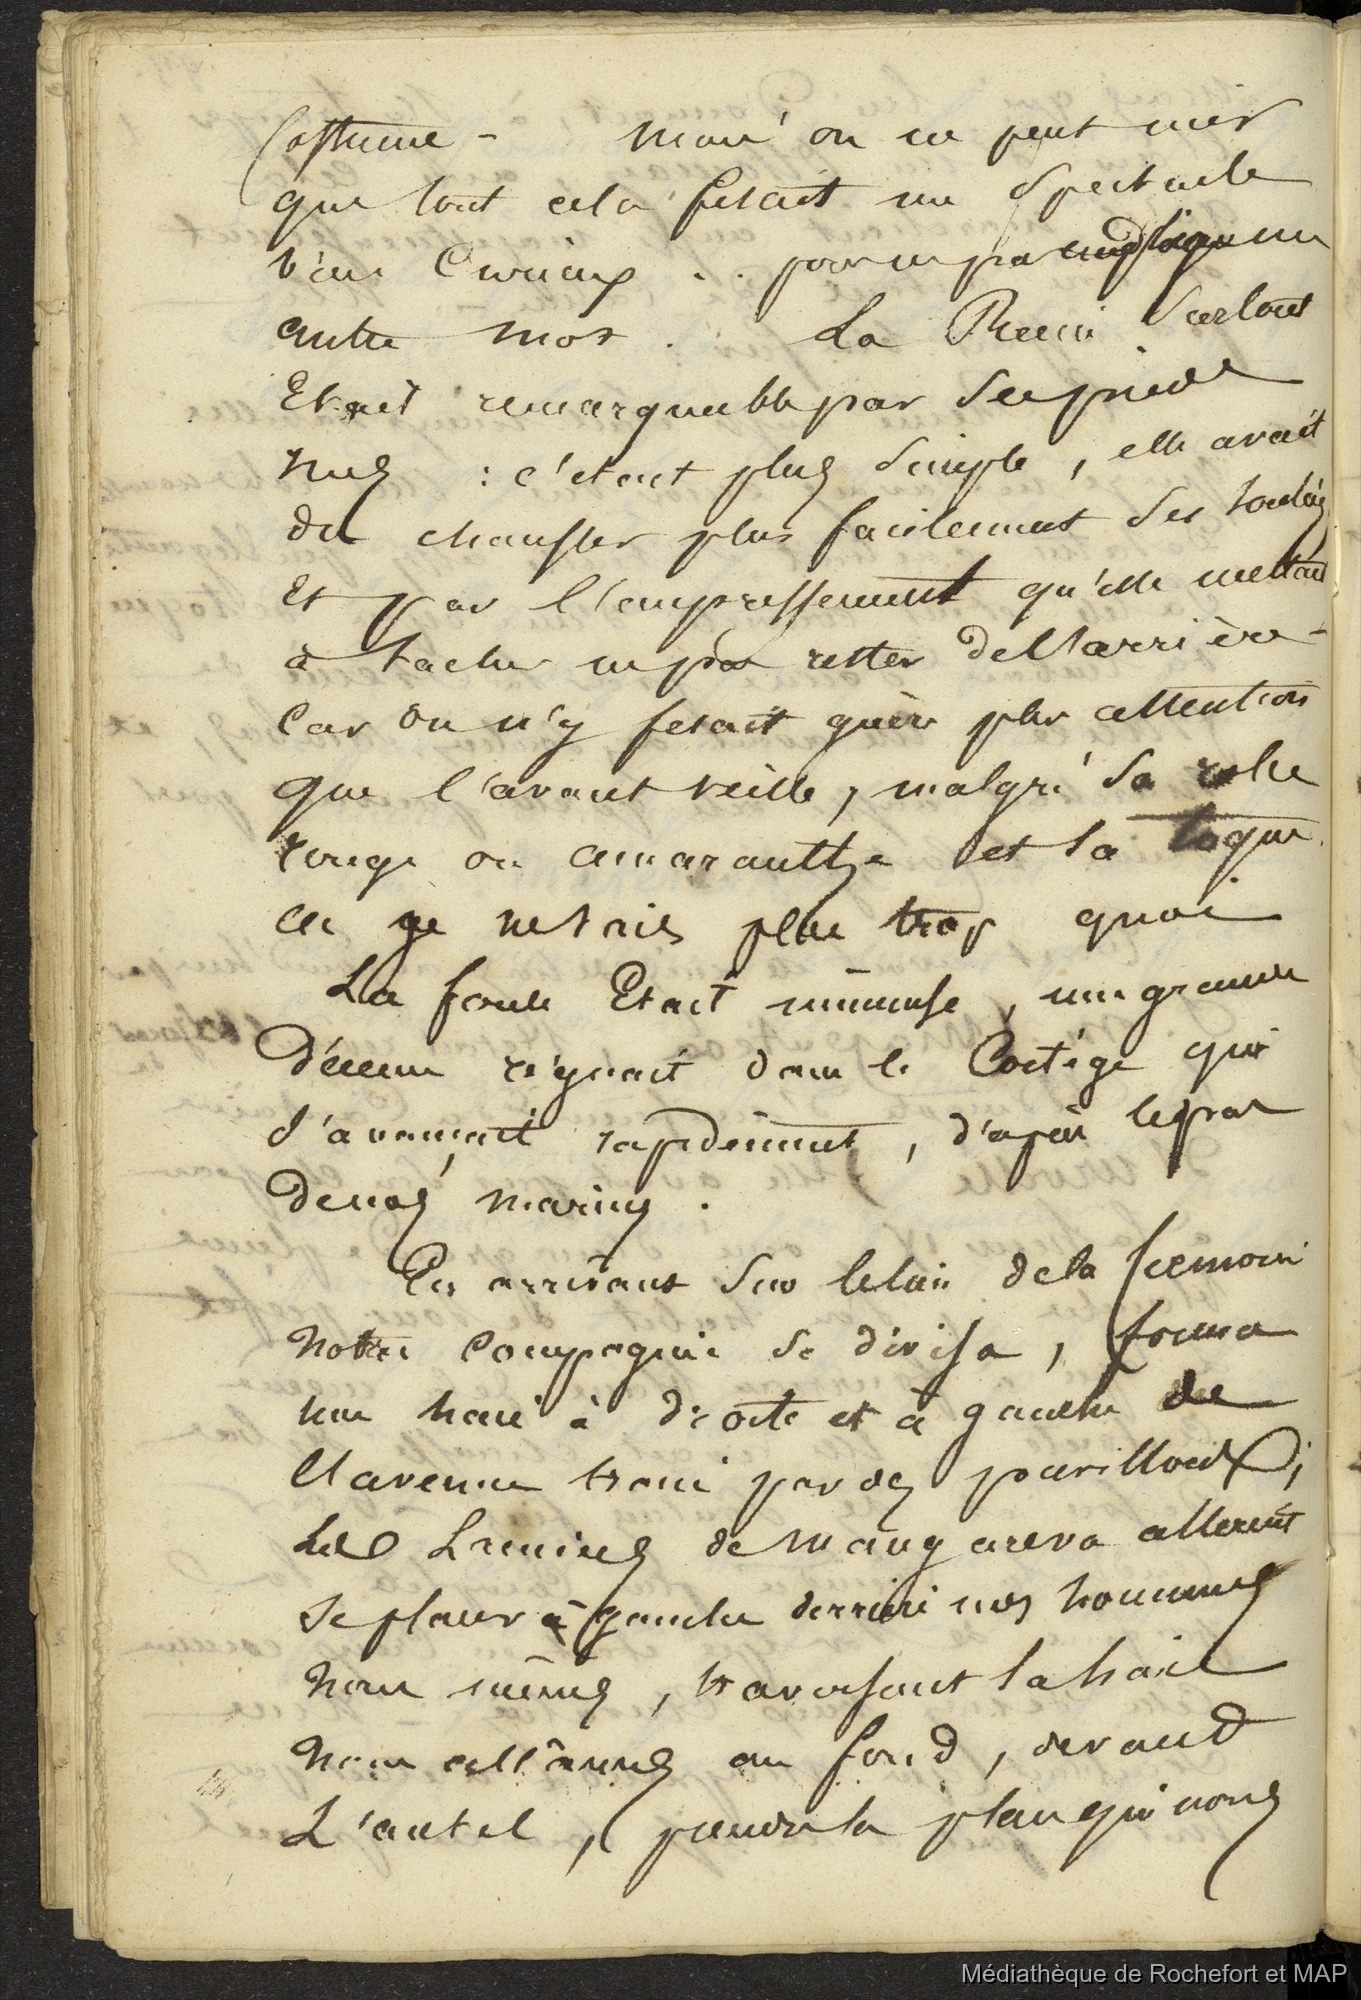 Costume - Mais on ne peut nier
que tout cela fesait un Spectacle
bien Curieux .. pour ne pas employer un
autre mot . La Reine Surtout
Etait remarquable par Ses pieds
nus : c'etait plus Simple, elle avait
du chausser plus facilement Ses Souliers
Et par l'empressement qu'elle mettait
à tacher ne pas rester de l'arrière -
Car on n'y fesait guère plus attention
que l'avant veille, malgré Sa robe
rouge ou amaranthe et sa toque
de je ne sais plus trop quoi
La foule Etait immense, une grande
décence régnait dans le Cortége qui
s'avançait rapidement, d'après le pas
de nos marins .
En arrivant Sur le lieu de la Ceremonie
notre Compagnie se divisa, forma
une haie à droite et à gauche de
l'avenue formé par des pavillons ;
Les de Mangareva allerent
se placer à gauche derriere nos hommes
nous mêmes, traversant la haie
nous allâmes au fond, devant
L'autel, prendre la place qui nous
Médiathèque de Rochefort et MAP